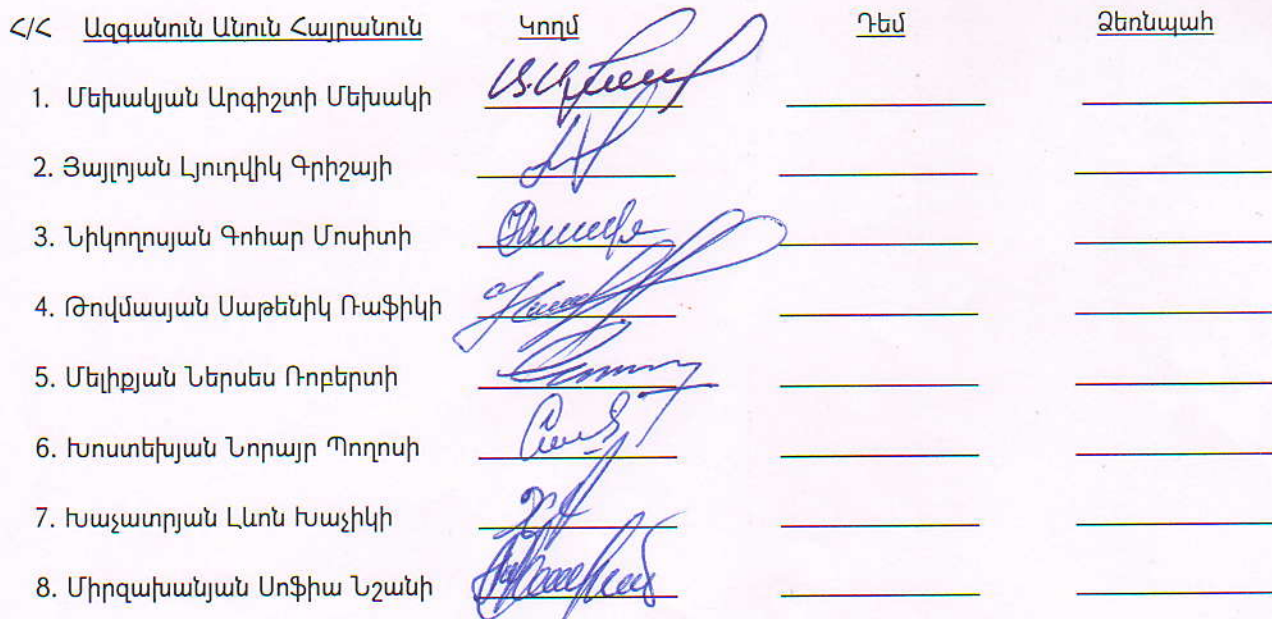 Հ/Հ Ազգանուն Անուն Հայրանուն Կողմ Դեմ Ձեռնպահ
1. Մեխակյան Արգիշտի Մեխակի
2. Յայլոյան Լյուդվիկ Գրիշայի
3. Նիկողոսյան Գոհար Մոսիտի
4. Թովմասյան Սաթենիկ Ռաֆիկի
5. Մելիքյան Ներսես Ռոբերտի
6. Խոստեխյան Նորայր Պողոսի
7. Խաչատրյան Լևոն Խաչիկի
8. Միրզախանյան Սոֆիա Նշանի